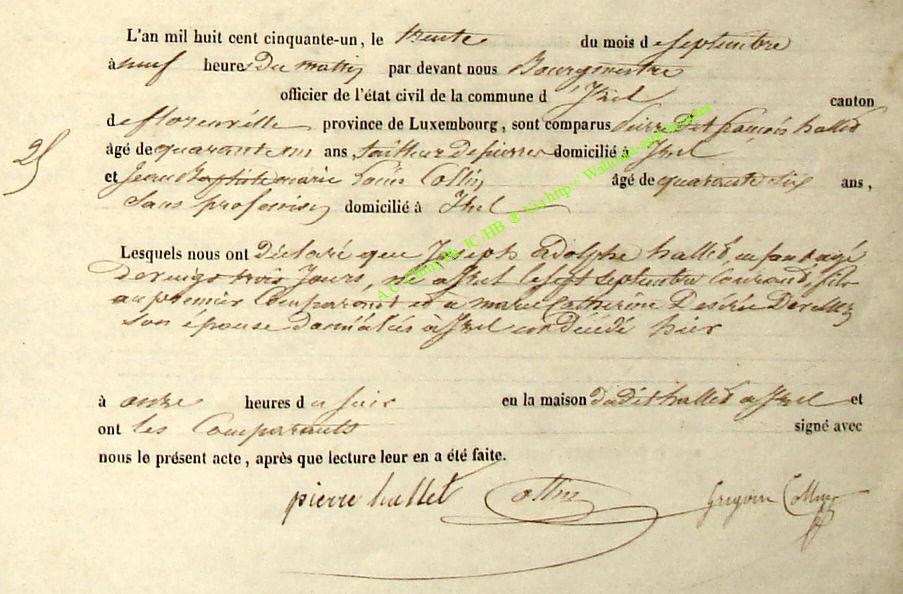 L'an mil huit cent cinquante-un, le trente du mois de septembre
à neuf heures du matin par devant nous Bourgmestre
officier de l'état civil de la commune d'Izel canton
de florenville province de Luxembourg, sont comparus pierre françois hallet
âgé de quarante un ans tailleur de pierres domicilié à Izel
25
et Jean Baptiste marie Louis Collin âgé de quarante six ans,
Sans profession domicilié à Izel
Lesquels nous ont déclaré que Joseph adolphe hallet, enfant agé
de vingt trois Jours, né a Izel le sept septembre courant, fils
au premier Comparant et a marie Catherine Desirée
son épouse domiciliés à Izel est décédé hier
à onze heures du soir en la maison dudit hallet a Izel et
ont les Comparants signé avec
nous le présent acte, après que lecture leur en a été faite.
pierre hallet Collin Grégoire Collin